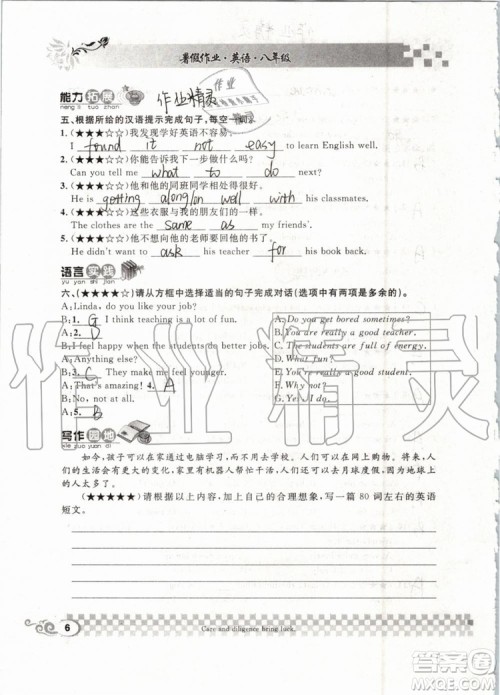 暑假作业·英语·八年级
能力拓展
neng li tuo zhan
作业精灵
作业
五、根据所给的汉语提示完成句子,每空一词。
1.(★★★☆☆)我发现学好英语不容易。
I found it not easy to learn English well.
2.(★★★☆☆)你能告诉我下一步做什么吗?
Can you tell me what to do next?
3.(★★★☆☆)他和他的同班同学相处融洽。
He is getting along/on well with his classmates.
4.(★★★☆☆)这些衣服与我朋友的一样。
The clothes are the same as my friends'.
5.(★★★☆☆)他不想向他的老师要回他的书。
He didn't want to ask his teacher for his book back.
语言实践
yu yan shi jian
六、(★★★★☆)请从方框中选择适当的句子完成对话(选项中有两项是多余的)。
A: Linda, do you like your job?
B: 1. G
A: 2. D
B: I feel happy when the students do better jobs.
A: Anything else?
B: 3. C They make me feel younger.
A: That's amazing! 4. A
B: No, not at all.
A: 5. B
A. Do you get bored sometimes?
B. You are really a great teacher.
C. The students are full of energy.
D. What fun?
E. You are really a good student.
F. Of course.
G. Yes, I do.
写作园地
xie zuo yuan di
如今,孩子可以在家通过电脑学习,而不用去学校。人们可以在网上购物。人们的生活发生了更大的变化,家里有机器人帮忙干活,人们还可以去月球度假,因为地球上的人太多了。
(★★★★★)请根据以上内容,加上自己的合理想象,写一篇 80 词左右的英语短文。
6
Care and diligence bring luck.
作业精灵
答案圈
MXQE.COM